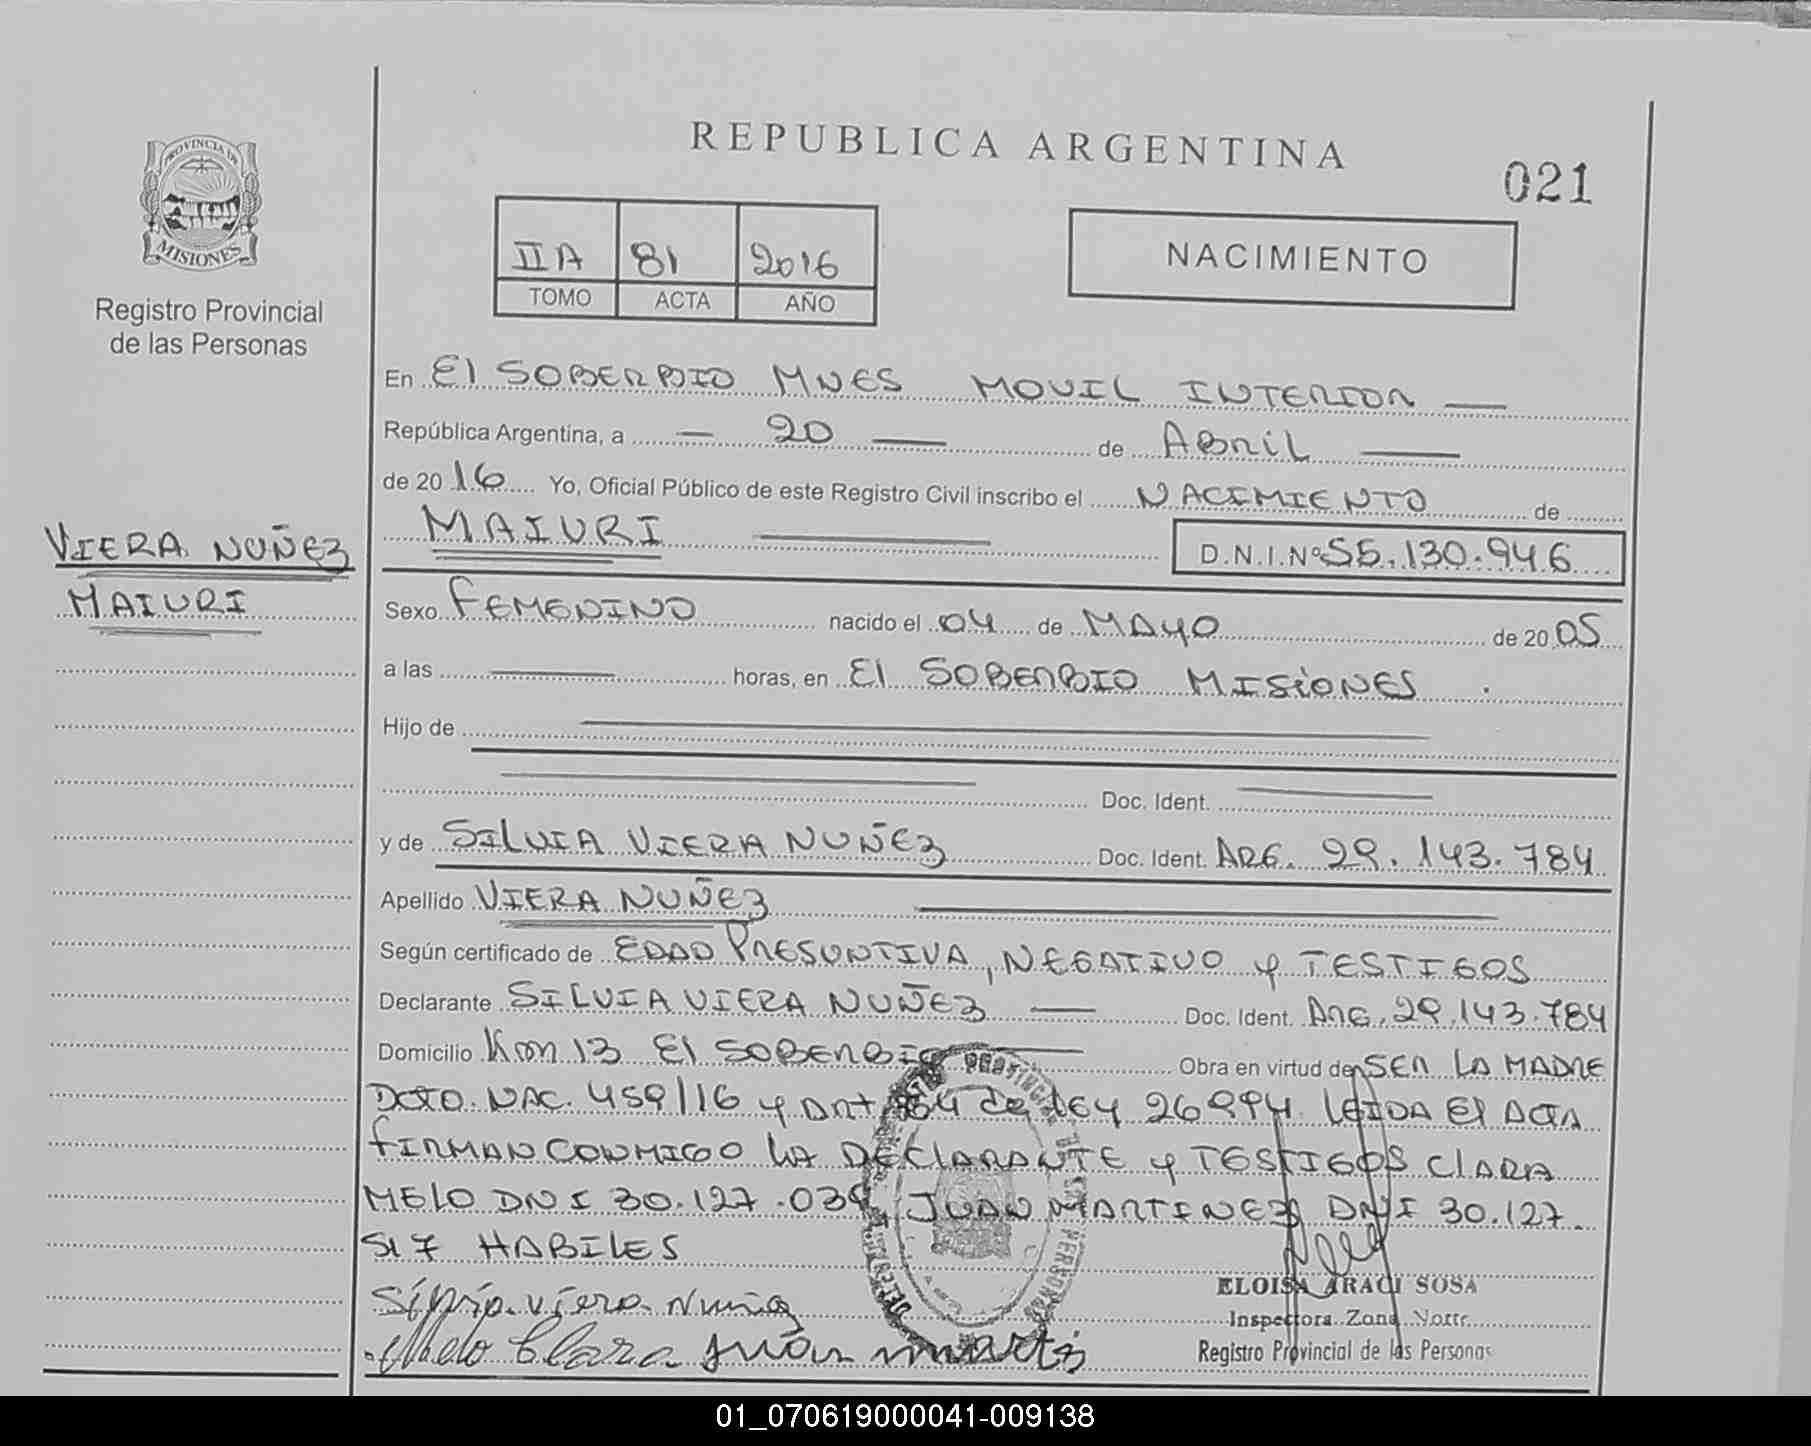 REPUBLICA ARGENTINA
021
PROVINCIA DE
MISIONES
Registro Provincial
de las Personas
IIA 81 2016
TOMO ACTA AÑO
NACIMIENTO
En El SOBERBIO MNES MOVIL INTERIOR
República Argentina, a 20 de Abril
de 20 16 Yo, Oficial Público de este Registro Civil inscribo el NACIMIENTO de
MAIURI
D.N.I.Nº 55.130.946
VIERA NUÑEZ
MAIURI
Sexo FEMENINO nacido el 04 de MAYO de 20 05
a las horas, en El SOBERBIO MISIONES .
Hijo de
Doc. Ident.
y de SILVIA VIERA NUÑEZ Doc. Ident. ARG. 29.143.784
Apellido VIERA NUÑEZ
Según certificado de EDAD PRESUNTIVA, NEGATIVO y TESTIGOS
Declarante SILVIA VIERA NUÑEZ Doc. Ident. ARG. 29.143.784
Domicilio Km 13 El SOBERBIO Obra en virtud de SER LA MADRE
DCTO. NAC. 459/16 y Art 64 de ley 26994. LEIDA El ACTA
FIRMAN CONMIGO LA DECLARANTE y TESTIGOS CLARA
MELO DNI 30.127.039, JUAN MARTINEZ DNI 30.127.
517 HABILES
Silvia Viera Nuñez
Melo Clara Juan
ELOISA ARACI SOSA
Inspectora Zona Norte
Registro Provincial de las Personas
01_070619000041-009138